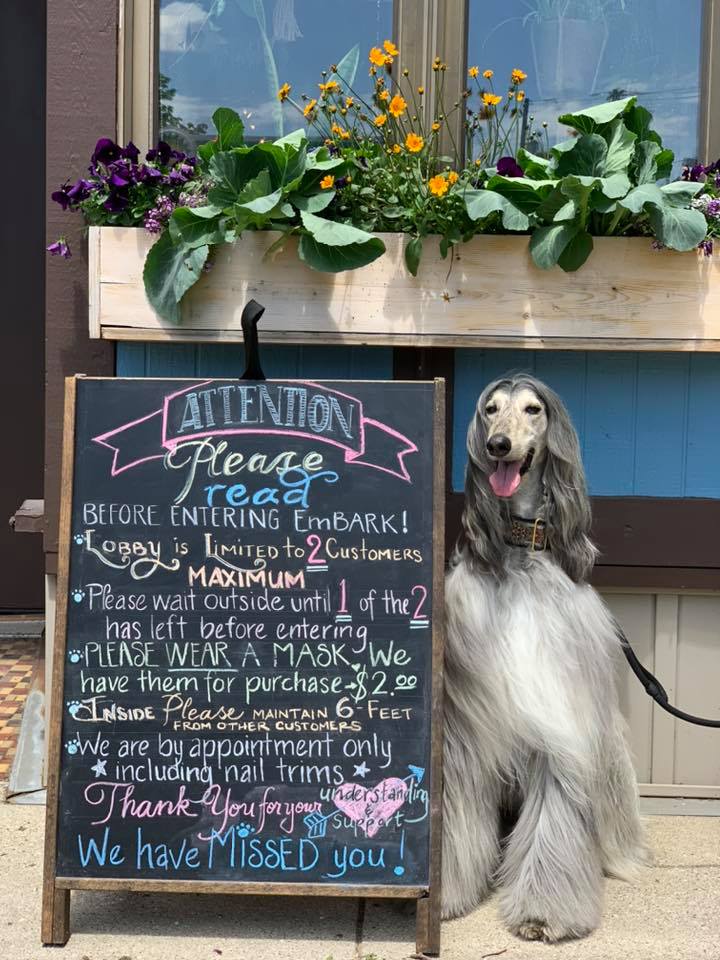 ATTENTION
Please
read
BEFORE ENTERING EmBARK!
Lobby is Limited to 2 Customers
MAXIMUM
Please wait outside until 1 of the 2
has left before entering
PLEASE WEAR A MASK. We
have them for purchase - $2.00
Inside Please MAINTAIN 6-FEET
FROM OTHER CUSTOMERS
We are by appointment only
including nail trims
Thank You for your understanding
& Support
We have MISSED you!